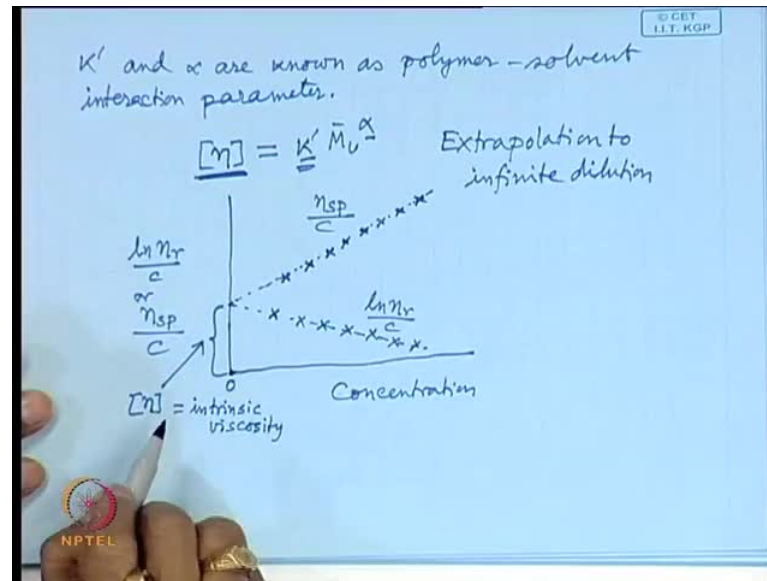 © CET
I.I.T. KGP
K' and α are known as polymer-solvent
interaction parameter.
[η] = K' M̄ᵥ^α
Extrapolation to
infinite dilution
ηsp
C
ln ηr
c
or
ηsp
C
ln ηr
c
0
Concentration
[η] = intrinsic
viscosity
NPTEL